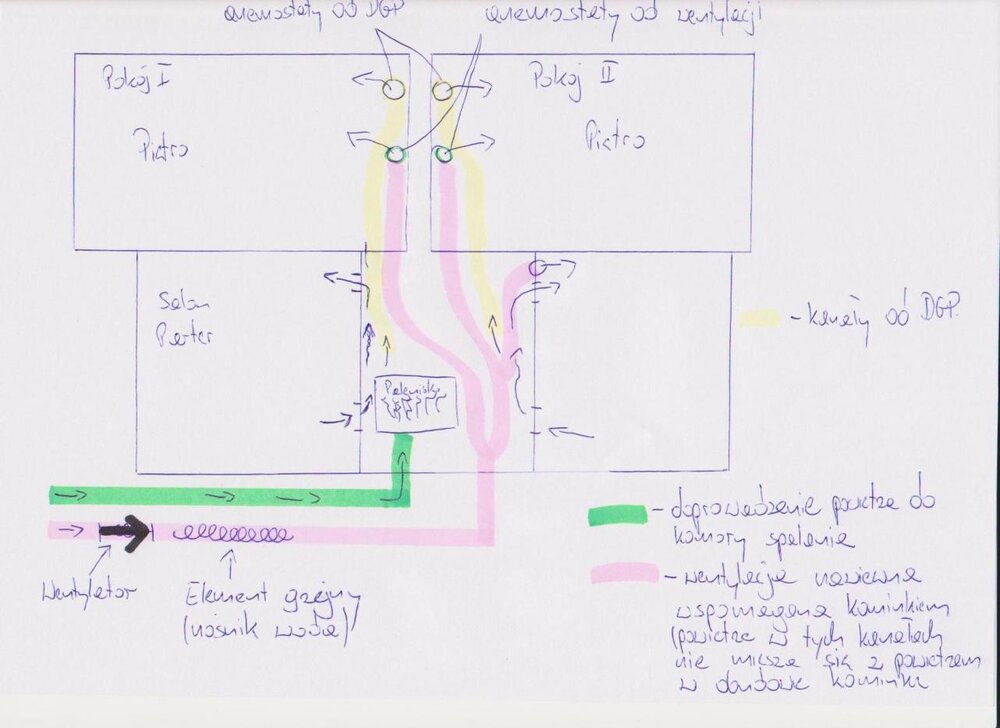 anemostaty od DGP
anemostaty od wentylacji
Pokój I
Piętro
Pokój II
Piętro
Salon
Parter
Palenisko
- kanały od DGP.
- doprowadzenie powietrza do
komory spalania
- wentylacja nawiewna
wspomagana kominkiem
(powietrze w tych kanałach
nie miesza się z powietrzem
w obudowie kominka
Wentylator
Element grzejny
(nośnik woda)